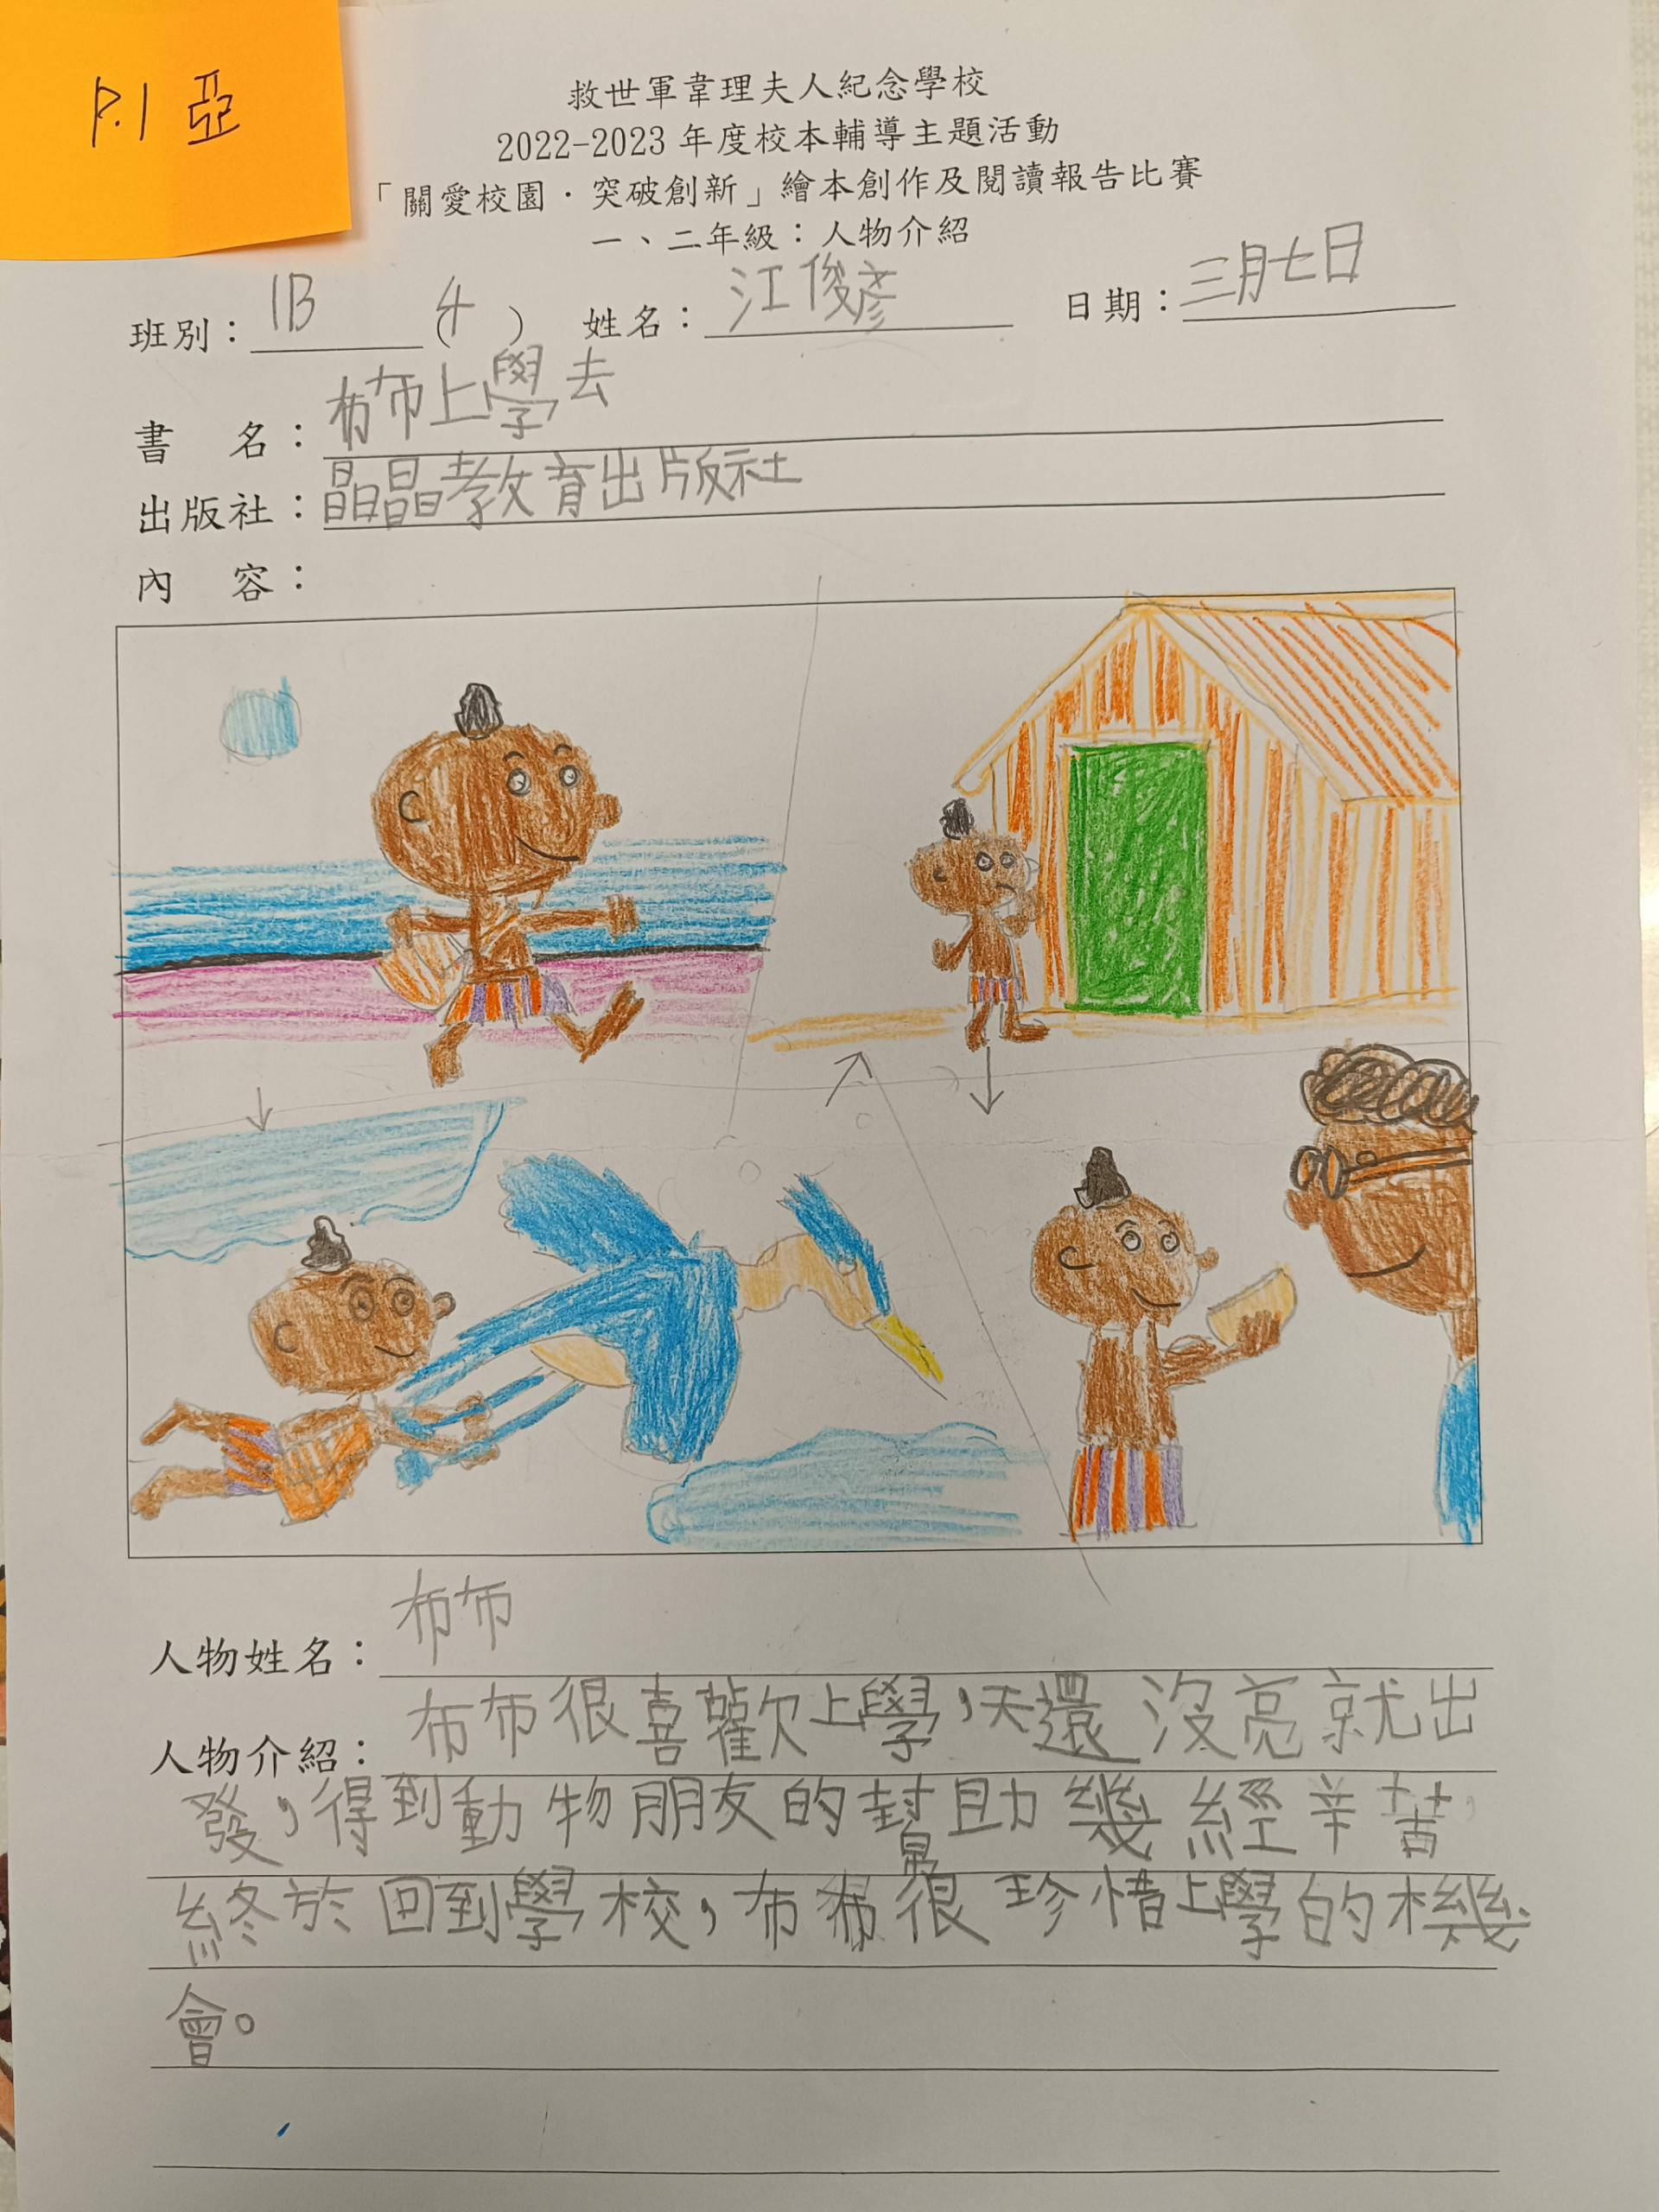 P.1 亞
救世軍韋理夫人紀念學校
2022-2023 年度校本輔導主題活動
「關愛校園．突破創新」繪本創作及閱讀報告比賽
一、二年級：人物介紹
班別：1B (4) 姓名：江俊彥 日期：三月七日
書 名：布布上學去
出版社：晶晶教育出版社
內 容：
人物姓名：布布
人物介紹：布布很喜歡上學，天還沒亮就出
發，得到動物朋友的幫助幾經辛苦，
終於回到學校，布布很珍惜上學的機
會。